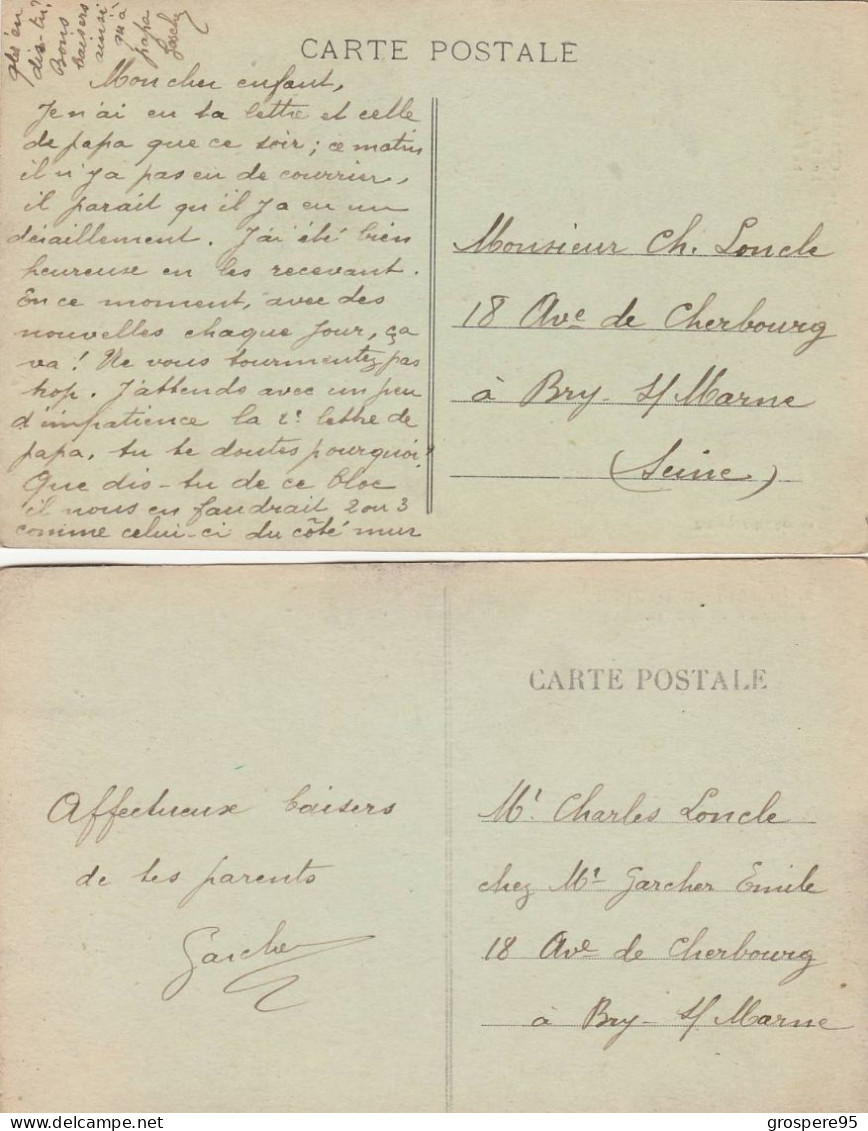 qu'en
dis-tu?
Bons
baisers
ainsi
qu'à
papa
CARTE POSTALE
Mon cher enfant,
Je n'ai eu ta lettre et celle
de papa que ce soir; ce matin
il n'y a pas eu de courrier,
il parait qu'il y a eu un
déraillement. J'ai été bien
heureuse en les recevant.
En ce moment, avec des
nouvelles chaque jour, ça
va! Ne vous tourmentez pas
trop. J'attends avec un peu
d'impatience la 2e lettre de
papa, tu te doutes pourquoi?
Que dis-tu de ce bloc
il nous en faudrait 2 ou 3
comme celui-ci du côté mur
Monsieur Ch. Loncle
18 Ave de Cherbourg
à Bry-s/Marne
(Seine)
CARTE POSTALE
Affectueux baisers
de tes parents
Garcher
Mr Charles Loncle
chez Mr Garcher Emile
18 Ave de Cherbourg
à Bry-s/Marne
grospere95